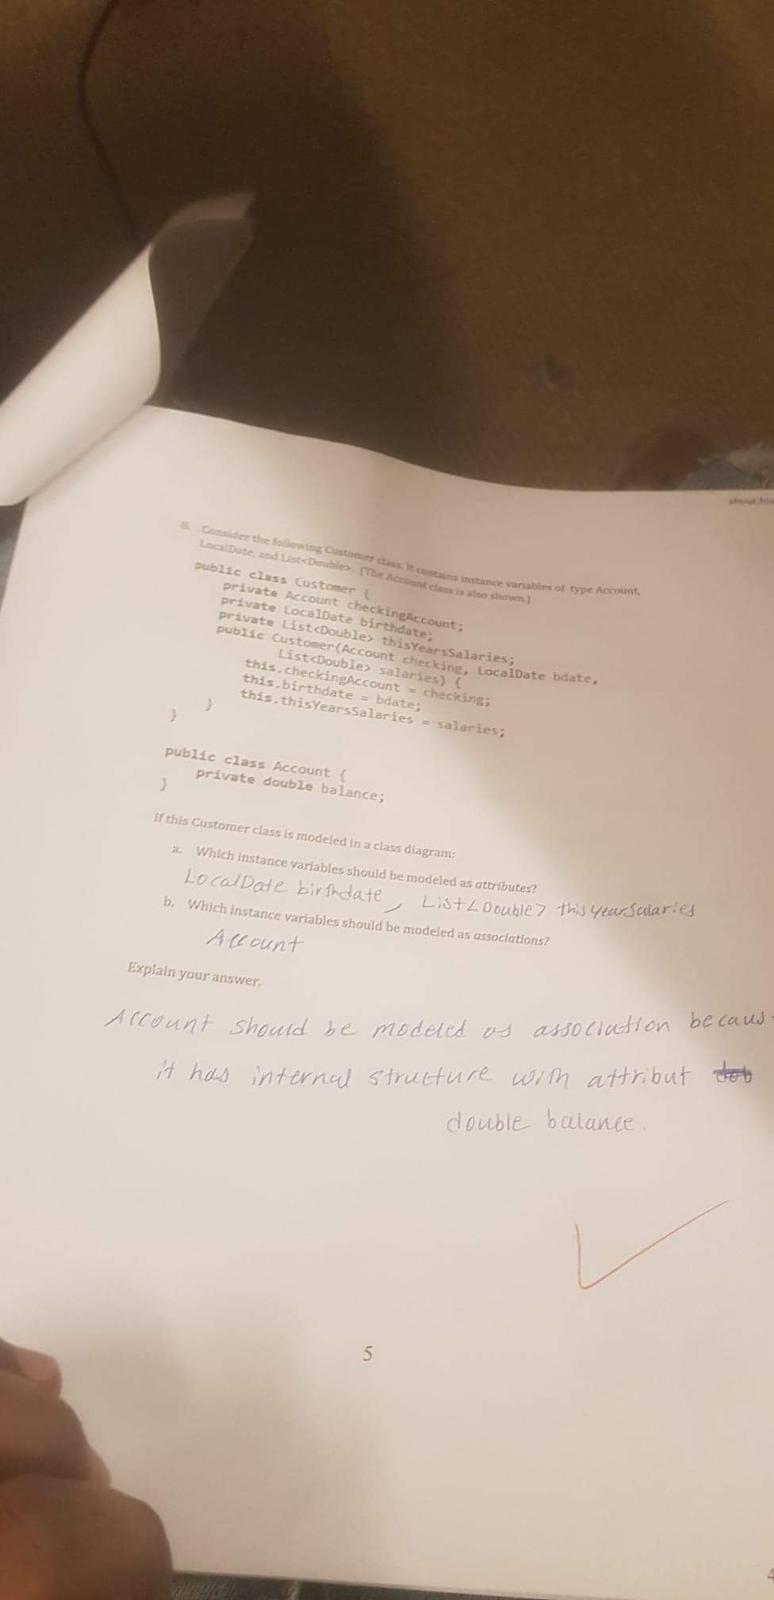 8. Consider the following Customer class. It contains instance variables of type Account,
LocalDate, and List<Double>. (The Account class is also shown.)
public class Customer {
private Account checkingAccount;
private LocalDate birthdate;
private List<Double> thisYearsSalaries;
public Customer(Account checking, LocalDate bdate,
List<Double> salaries) {
this.checkingAccount = checking;
this.birthdate = bdate;
this.thisYearsSalaries = salaries;
}
}
public class Account {
private double balance;
}
If this Customer class is modeled in a class diagram:
a. Which instance variables should be modeled as attributes?
LocalDate birthdate, List<Double> thisyearsalaries
b. Which instance variables should be modeled as associations?
Account
Explain your answer.
Account should be modeled as association becaus
it has internal structure with attribut
double balance.
5